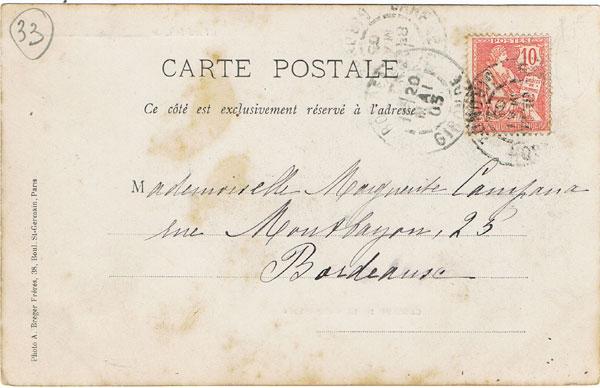 33
POSTES
10
CARTE POSTALE
20
MAI
03
GIRONDE
Ce côté est exclusivement réservé à l'adresse
Mademoiselle Marguerite Campana
rue Montbazon, 25
Bordeaux
Photo A. Breger Frères, 38, Boul. St-Germain, Paris